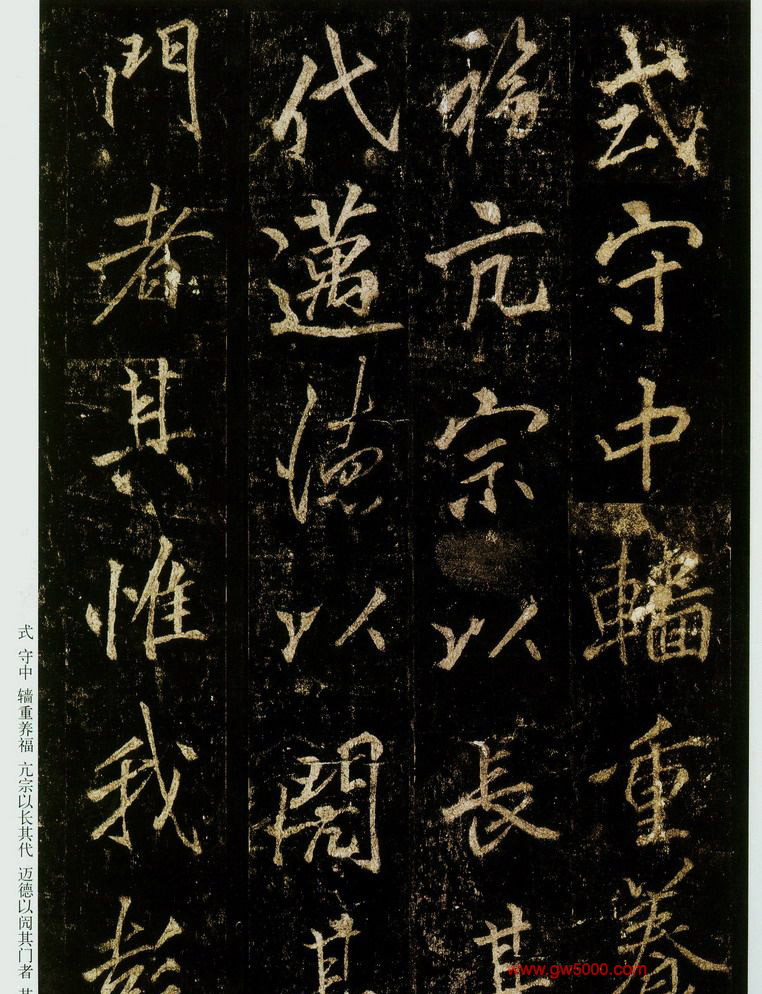 式守中輜重養
福亢宗以長其
代邁德以閱其
門者其惟我彭
式 守中 辎重养福 亢宗以长其代 迈德以阅其门者 其
www.gw5000.com